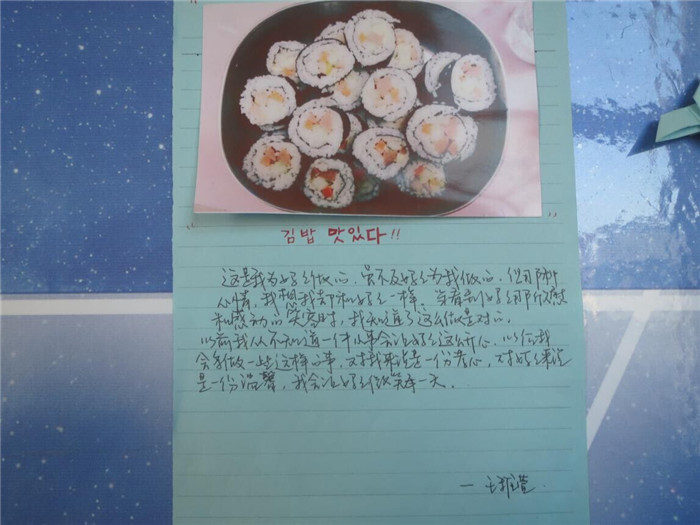 김밥 맛있다!!
这是我为妈妈做的，虽不及妈妈为我做的，但那种
心情，我想我却和妈妈一样，当看到妈妈那欣慰
和感动的笑容时，我知道了这么做是对的。
以前我从不知道一件小事会让妈妈这么开心，以后我
会多做一些这样的事，对我来说是一份孝心，对妈妈来说
是一份温馨，我会让妈妈微笑每一天。